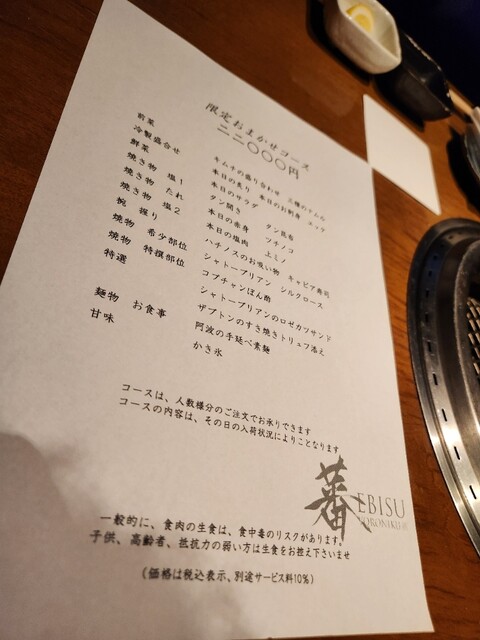 限定おまかせコース
二二〇〇〇円
前菜 キムチの盛り合わせ 三種のナムル
冷製盛合せ 本日の炙り 本日のお刺身 ユッケ
鮮菜 本日のサラダ
焼き物 塩1 タン開き タン昆布
焼き物 たれ 本日の赤身 ツチノコ
焼き物 塩2 本日の塩肉 上ミノ
椀 握り ハチノスのお吸い物 キャビア寿司
焼物 希少部位 シャトーブリアン シルクロース
焼物 特撰部位 コプチャンぽん酢
特選 シャトーブリアンのロゼカツサンド
ザブトンのすき焼きトリュフ添え
麺物 お食事 阿波の手延べ素麺
甘味 かき氷
コースは、人数様分のご注文でお承りできます
コースの内容は、その日の入荷状況によりことなります
蕃 EBISU
YORONIKU
一般的に、食肉の生食は、食中毒のリスクがあります。
子供、高齢者、抵抗力の弱い方は生食をお控え下さいませ
(価格は税込表示、別途サービス料10%)